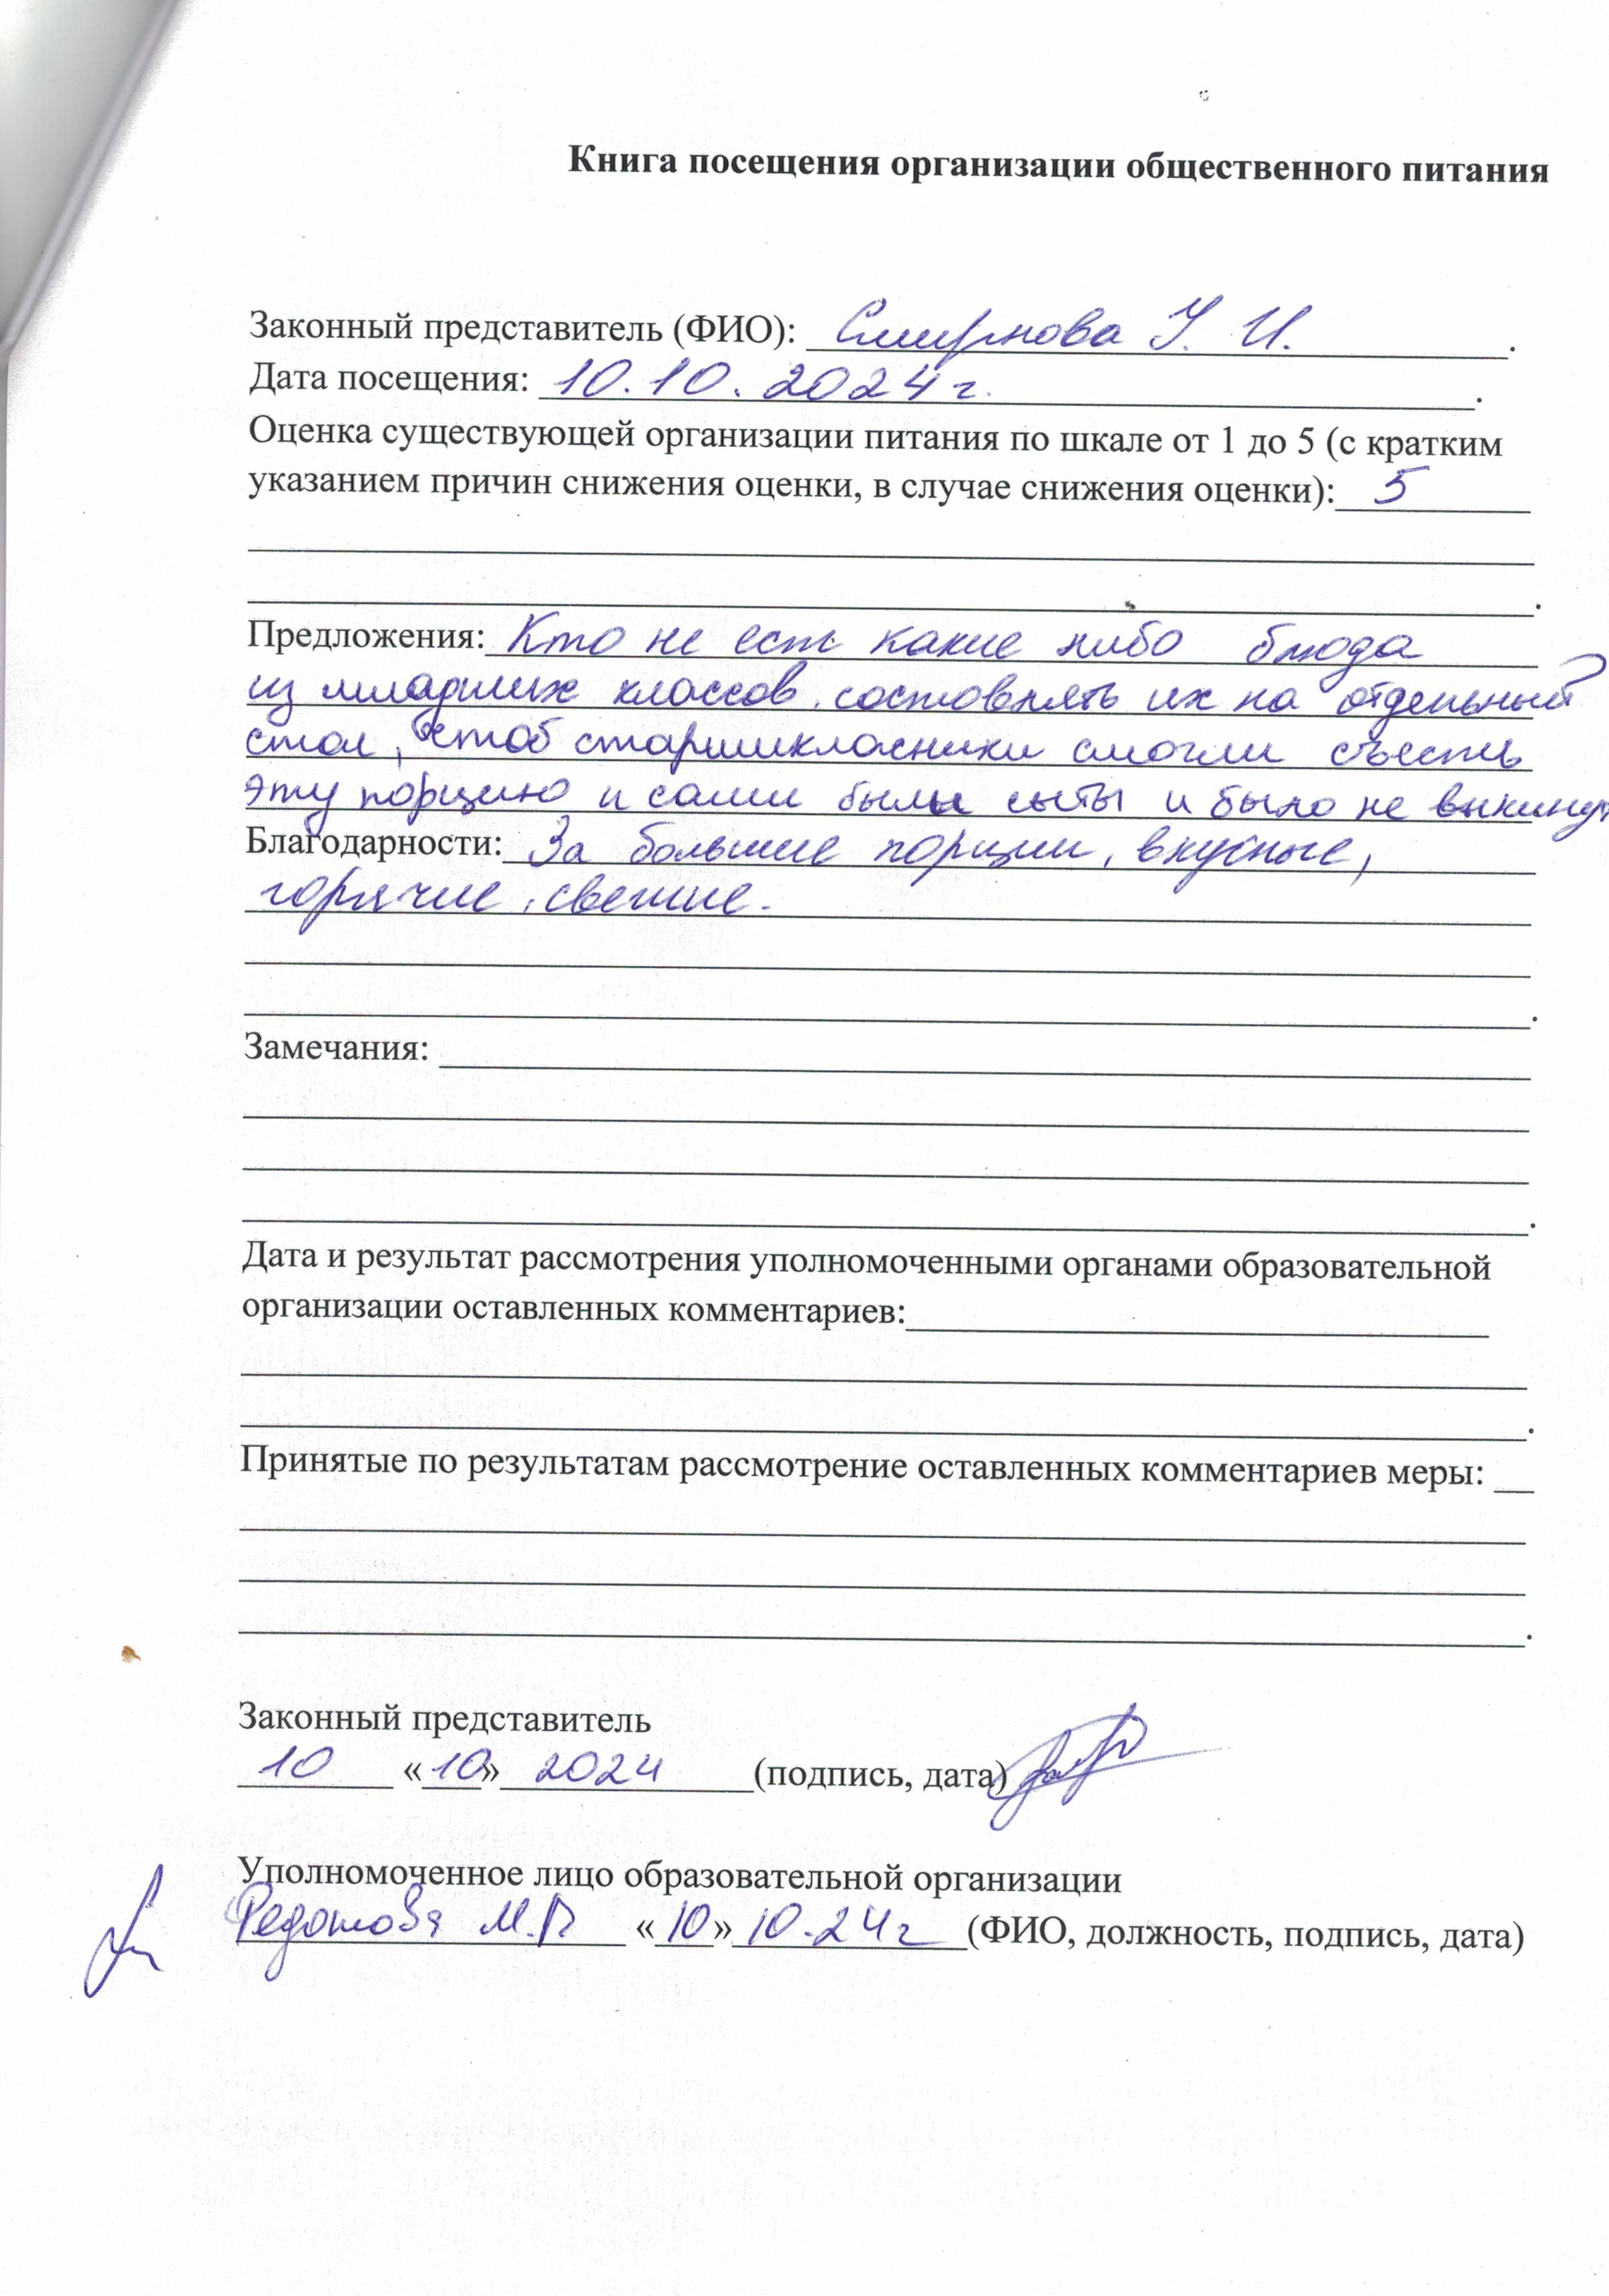 Книга посещения организации общественного питания
Законный представитель (ФИО): Смирнова У. И.
Дата посещения: 10.10.2024 г.
Оценка существующей организации питания по шкале от 1 до 5 (с кратким
указанием причин снижения оценки, в случае снижения оценки): 5
Предложения: Кто не есть какие либо блюда
из младших классов, состовлять их на отдельный
стол, чтоб старшикласники смогли съесть
эту порцию и сами были сыты и было не выкинут
Благодарности: За большие порции, вкусные,
горячие, свежие.
Замечания:
Дата и результат рассмотрения уполномоченными органами образовательной
организации оставленных комментариев:
Принятые по результатам рассмотрение оставленных комментариев меры:
Законный представитель
10 «10» 2024 (подпись, дата)
Уполномоченное лицо образовательной организации
Федотова М.В «10» 10.24г (ФИО, должность, подпись, дата)